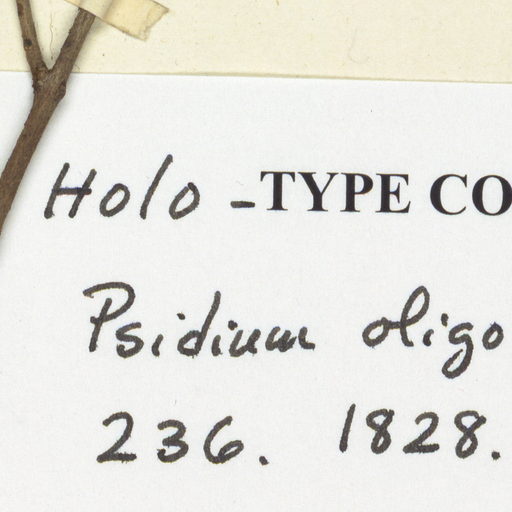 Holo-TYPE CO
Psidium oligo
236. 1828.